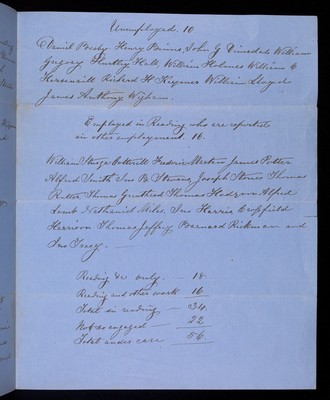 Unemployed. 10
Daniel Busby Henry Binns, John G Dimsdale William
Gregory Huntley Hall William Holmes William C
Horsenaill Richard H Keymer William Lloyd
James Anthony Wigham.
Employed in Reading who are reported
in other employment. 16.
William Sturge Frederic James Potter
Alfred Smith Jno B Stevens Joseph Stone Thomas
Rutter Thomas Thomas Hodgson Alfred
Lamb Nathaniel Miles. Jno Harris Cropfield
Harrison Thomas Jeffrey, Barnard Rickman and
Jno Tracy. —
Reading &c only. — 18.
Reading and other work 16
Total in reading — 34.
Not as engaged — 22
Total under care — 56.